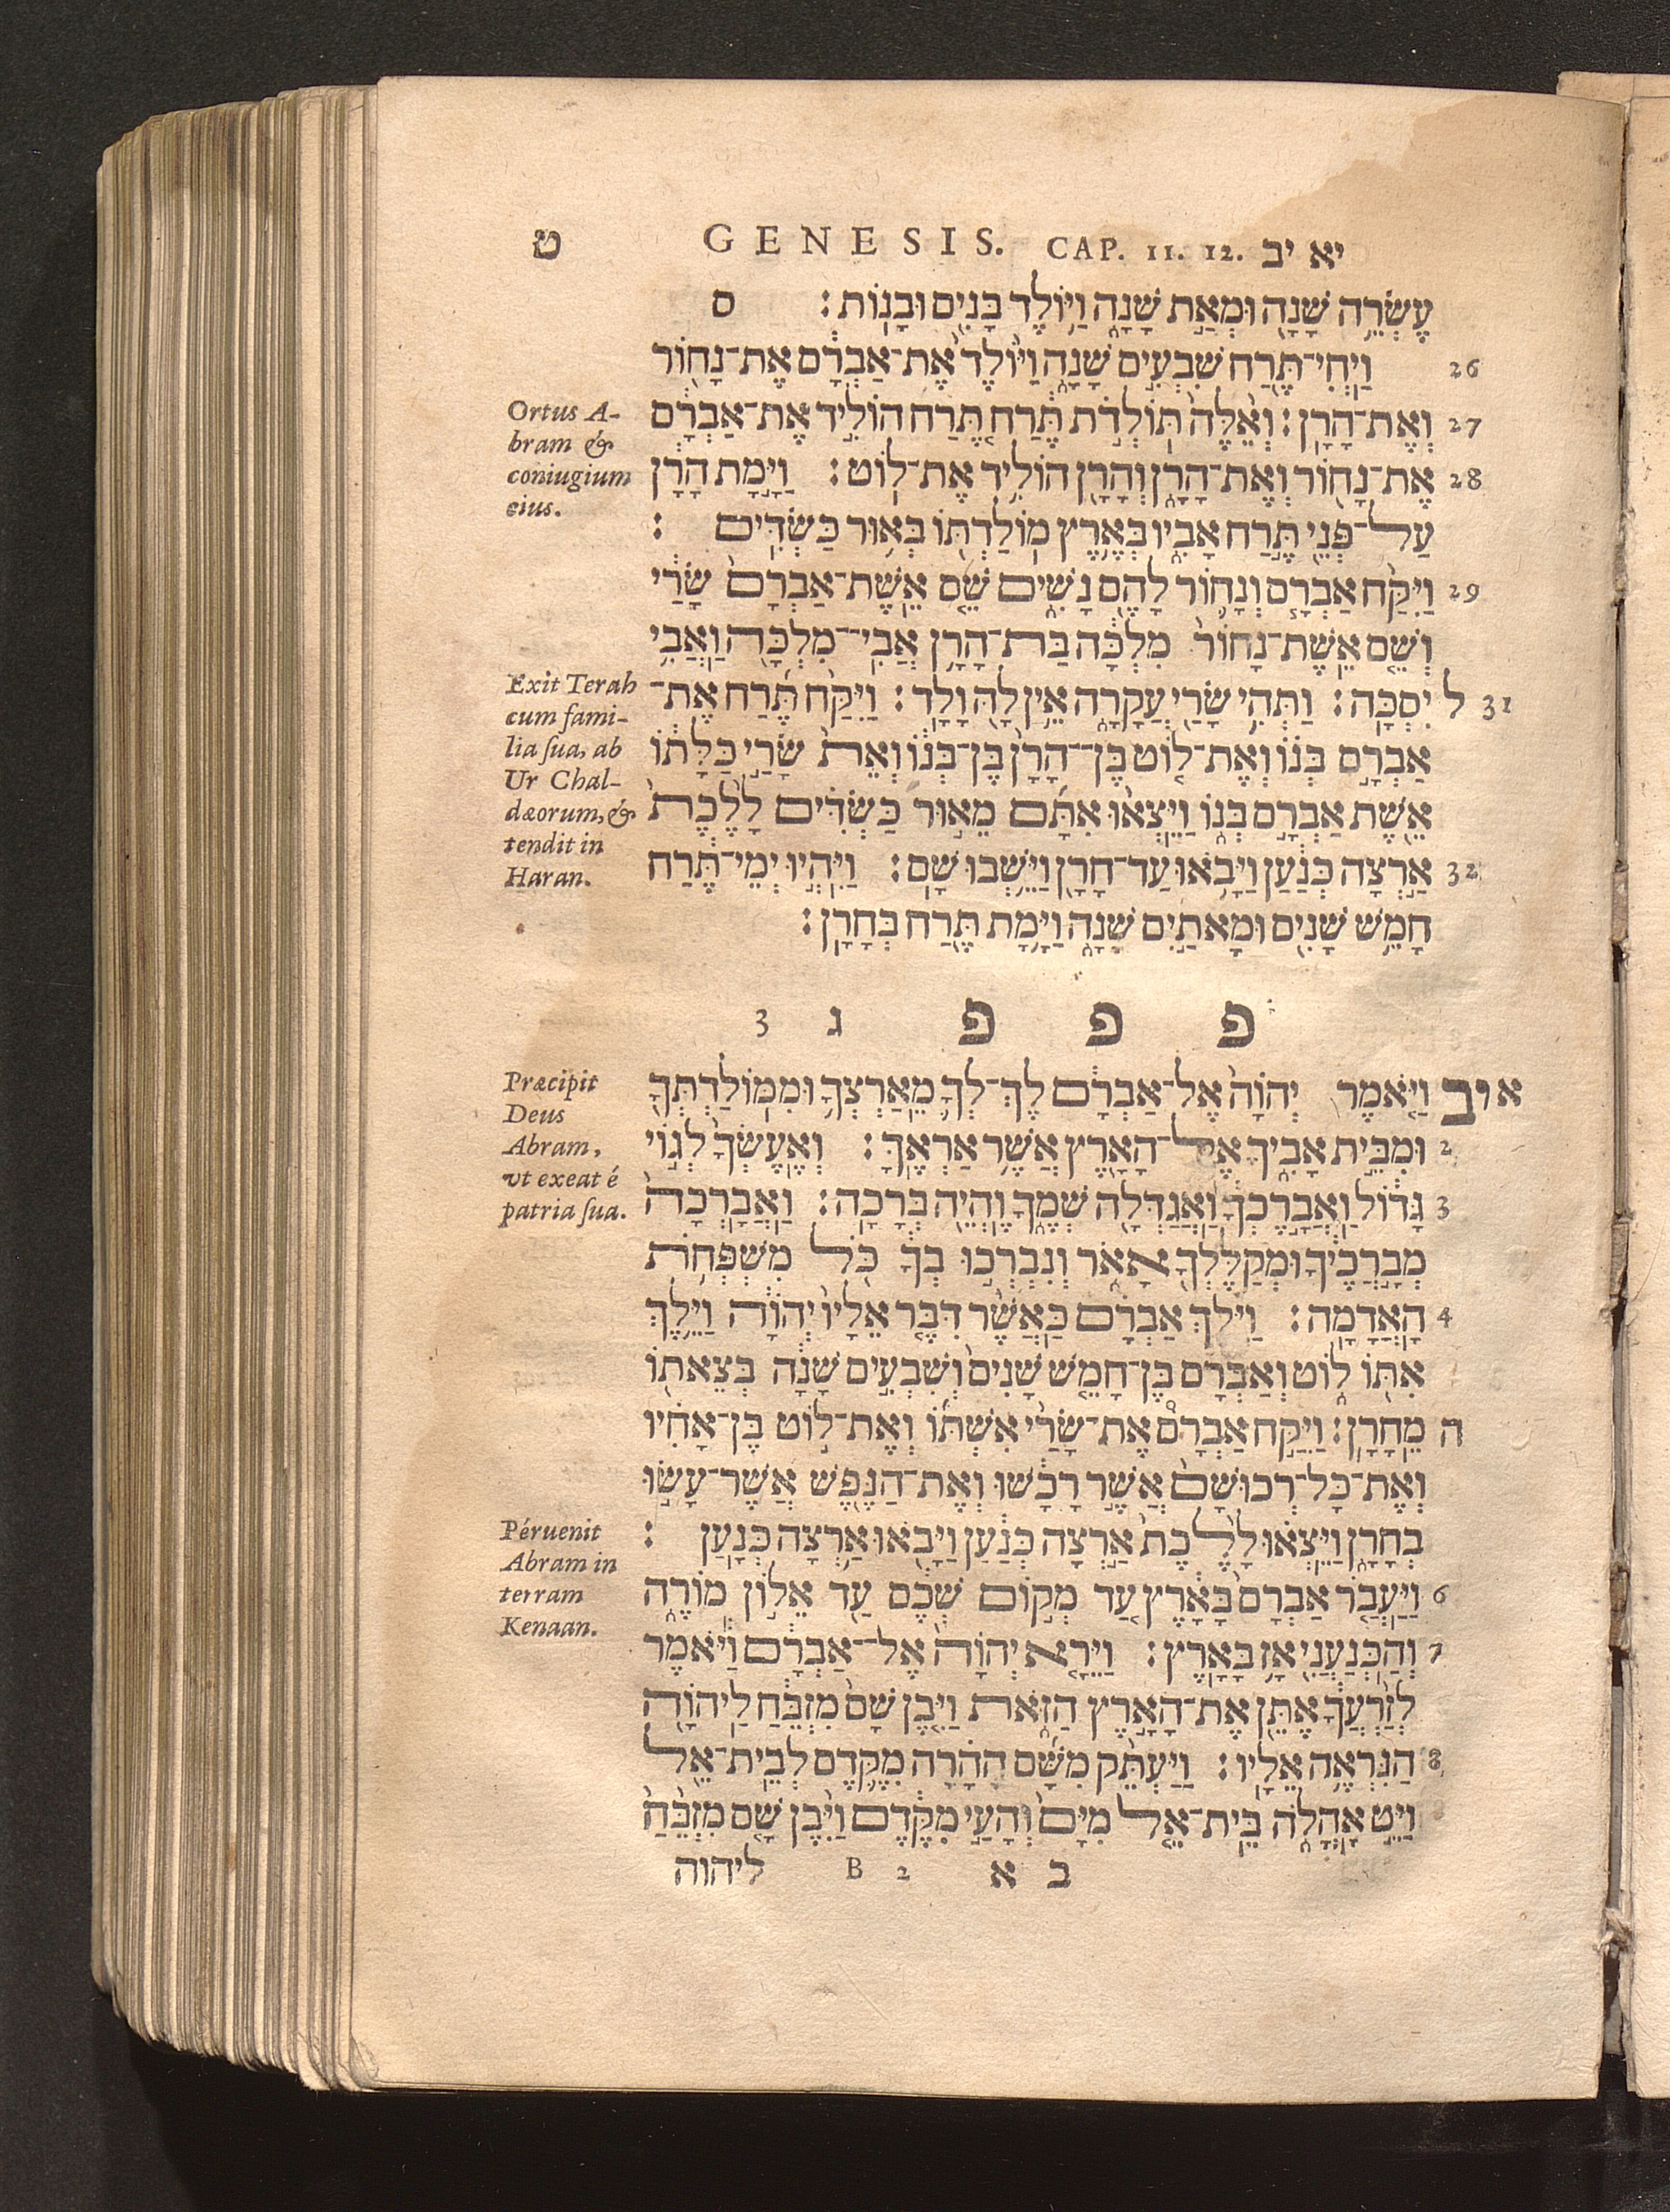 ט GENESIS. CAP. 11. 12. יא יב
עֶשְׂרֵה שָׁנָה וּמְאַת שָׁנָה וַיּוֹלֶד בָּנִים וּבָנוֹת׃ ס
26 וַיְחִי־תֶרַח שִׁבְעִים שָׁנָה וַיּוֹלֶד אֶת־אַבְרָם אֶת־נָחוֹר
27 וְאֶת־הָרָן׃ וְאֵלֶּה תּוֹלְדֹת תֶּרַח תֶּרַח הוֹלִיד אֶת־אַבְרָם
28 אֶת־נָחוֹר וְאֶת־הָרָן וְהָרָן הוֹלִיד אֶת־לוֹט׃ וַיָּמָת הָרָן
עַל־פְּנֵי תֶּרַח אָבִיו בְּאֶרֶץ מוֹלַדְתּוֹ בְּאוּר כַּשְׂדִּים׃
29 וַיִּקַּח אַבְרָם וְנָחוֹר לָהֶם נָשִׁים שֵׁם אֵשֶׁת־אַבְרָם שָׂרַי
וְשֵׁם אֵשֶׁת־נָחוֹר מִלְכָּה בַּת־הָרָן אֲבִי־מִלְכָּה וַאֲבִי
ל 31 יִסְכָּה׃ וַתְּהִי שָׂרַי עֲקָרָה אֵין לָהּ וָלָד׃ וַיִּקַּח תֶּרַח אֶת־
אַבְרָם בְּנוֹ וְאֶת־לוֹט בֶּן־הָרָן בֶּן־בְּנוֹ וְאֵת שָׂרַי כַּלָּתוֹ
אֵשֶׁת אַבְרָם בְּנוֹ וַיֵּצְאוּ אִתָּם מֵאוּר כַּשְׂדִּים לָלֶכֶת
32 אַרְצָה כְּנַעַן וַיָּבֹאוּ עַד־חָרָן וַיֵּשְׁבוּ שָׁם׃ וַיִּהְיוּ יְמֵי־תֶרַח
חָמֵשׁ שָׁנִים וּמָאתַיִם שָׁנָה וַיָּמָת תֶּרַח בְּחָרָן׃
Ortus A-
bram &
coniugium
eius.
Exit Terah
cum fami-
lia sua, ab
Ur Chal-
dæorum, &
tendit in
Haran.
פ פ פ ג 3
א יב וַיֹּאמֶר יְהוָֹה אֶל־אַבְרָם לֶךְ־לְךָ מֵאַרְצְךָ וּמִמּוֹלַדְתְּךָ
2 וּמִבֵּית אָבִיךָ אֶל־הָאָרֶץ אֲשֶׁר אַרְאֶךָּ׃ וְאֶעֶשְׂךָ לְגוֹי
3 גָּדוֹל וַאֲבָרֶכְךָ וַאֲגַדְּלָה שְׁמֶךָ וֶהְיֵה בְּרָכָה׃ וַאֲבָרְכָה
מְבָרְכֶיךָ וּמְקַלֶּלְךָ אָאֹר וְנִבְרְכוּ בְךָ כֹּל מִשְׁפְּחֹת
4 הָאֲדָמָה׃ וַיֵּלֶךְ אַבְרָם כַּאֲשֶׁר דִּבֶּר אֵלָיו יְהוָֹה וַיֵּלֶךְ
אִתּוֹ לוֹט וְאַבְרָם בֶּן־חָמֵשׁ שָׁנִים וְשִׁבְעִים שָׁנָה בְּצֵאתוֹ
ה מֵחָרָן׃ וַיִּקַּח אַבְרָם אֶת־שָׂרַי אִשְׁתּוֹ וְאֶת־לוֹט בֶּן־אָחִיו
וְאֶת־כָּל־רְכוּשָׁם אֲשֶׁר רָכָשׁוּ וְאֶת־הַנֶּפֶשׁ אֲשֶׁר־עָשׂוּ
בְחָרָן וַיֵּצְאוּ לָלֶכֶת אַרְצָה כְּנַעַן וַיָּבֹאוּ אַרְצָה כְּנָעַן׃
6 וַיַּעֲבֹר אַבְרָם בָּאָרֶץ עַד מְקוֹם שְׁכֶם עַד אֵלוֹן מוֹרֶה
7 וְהַכְּנַעֲנִי אָז בָּאָרֶץ׃ וַיֵּרָא יְהוָֹה אֶל־אַבְרָם וַיֹּאמֶר
לְזַרְעֲךָ אֶתֵּן אֶת־הָאָרֶץ הַזֹּאת וַיִּבֶן שָׁם מִזְבֵּחַ לַיהוָֹה
8 הַנִּרְאֶה אֵלָיו׃ וַיַּעְתֵּק מִשָּׁם הָהָרָה מִקֶּדֶם לְבֵית־אֵל
וַיֵּט אָהֳלֹה בֵּית־אֵל מִיָּם וְהָעַי מִקֶּדֶם וַיִּבֶן שָׁם מִזְבֵּחַ
Præcipit
Deus
Abram,
vt exeat é
patria sua.
Péruenit
Abram in
terram
Kenaan.
ב א B 2 ליהוה